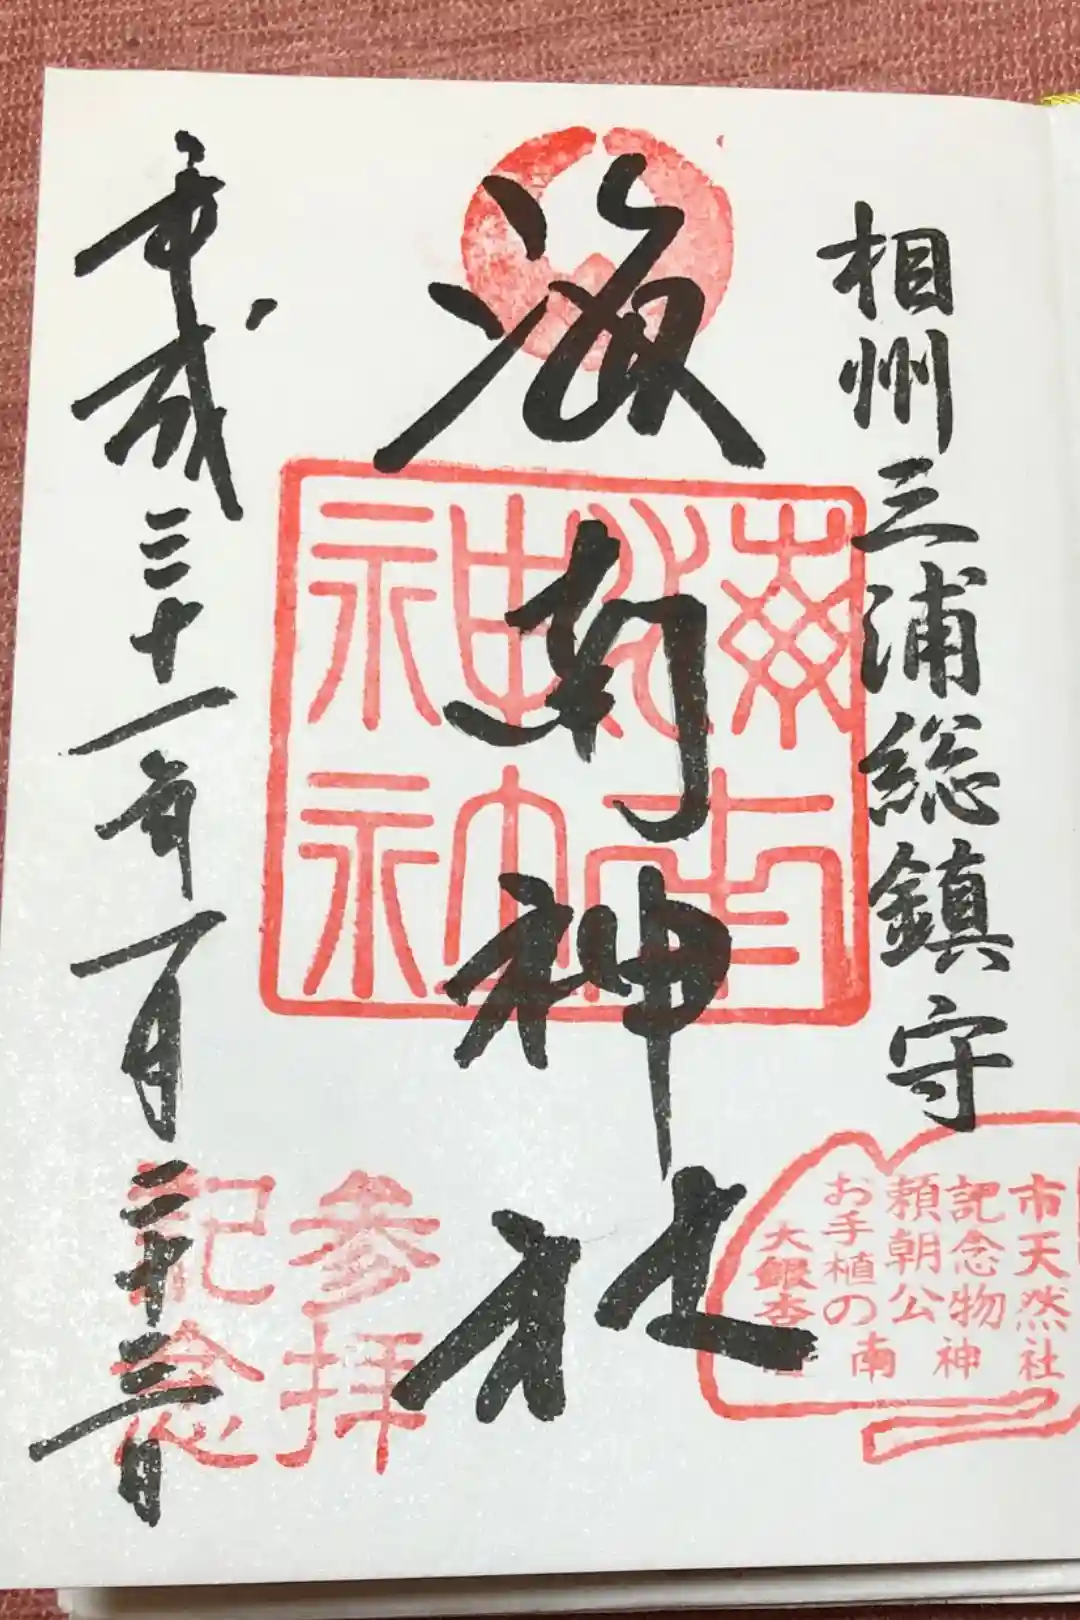 相州三浦総鎮守
海南神社
平成三十一年一月二十三日
海南
神社
参拝
記念
市天然
記念物
頼朝公
お手植の
大銀杏
南神社